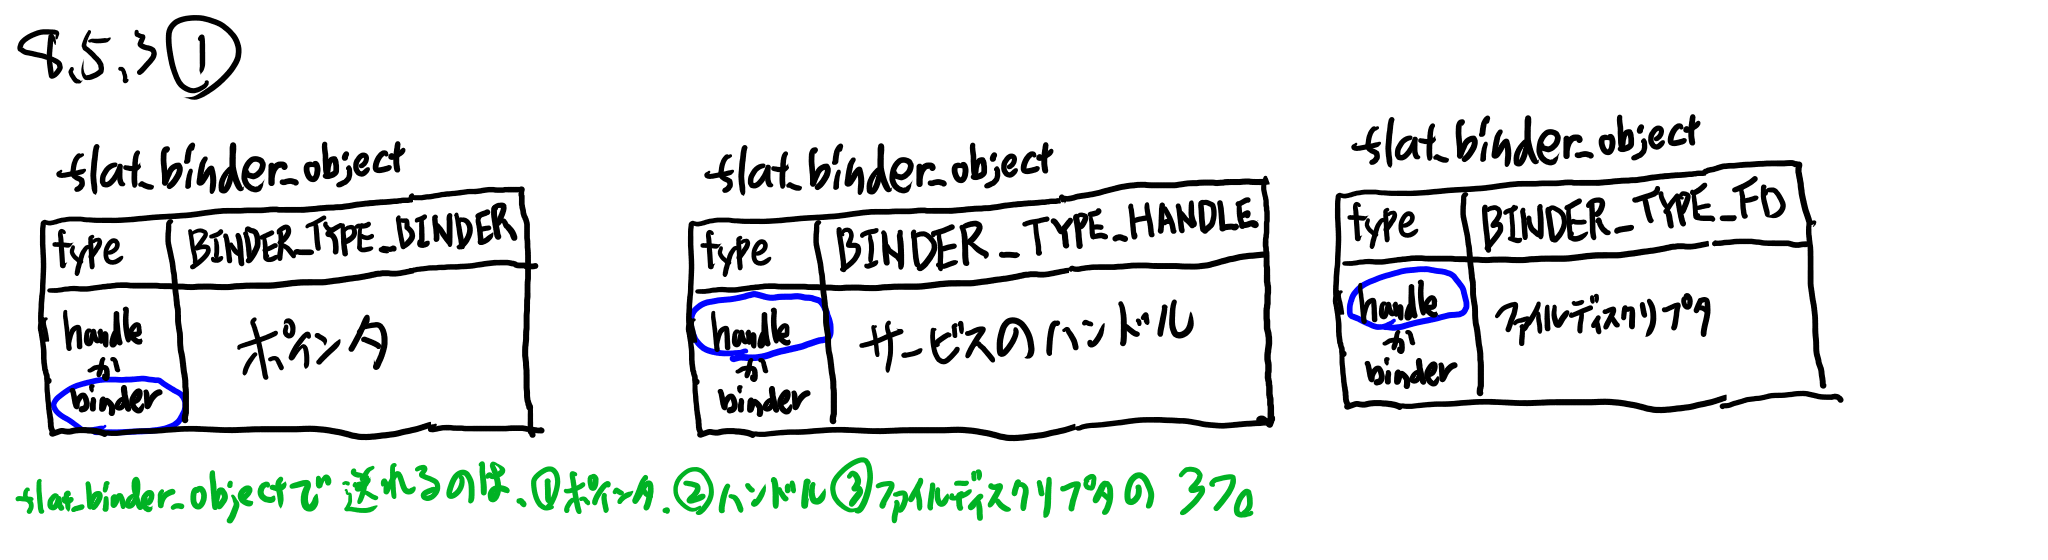 8.5.3 ①
flat_binder_object
type BINDER_TYPE_BINDER
handle
か
binder
ポインタ
flat_binder_object
type BINDER_TYPE_HANDLE
handle
か
binder
サービスのハンドル
flat_binder_object
type BINDER_TYPE_FD
handle
か
binder
ファイルディスクリプタ
flat_binder_objectで送れるのは、①ポインタ、②ハンドル③ファイルディスクリプタの3つ。